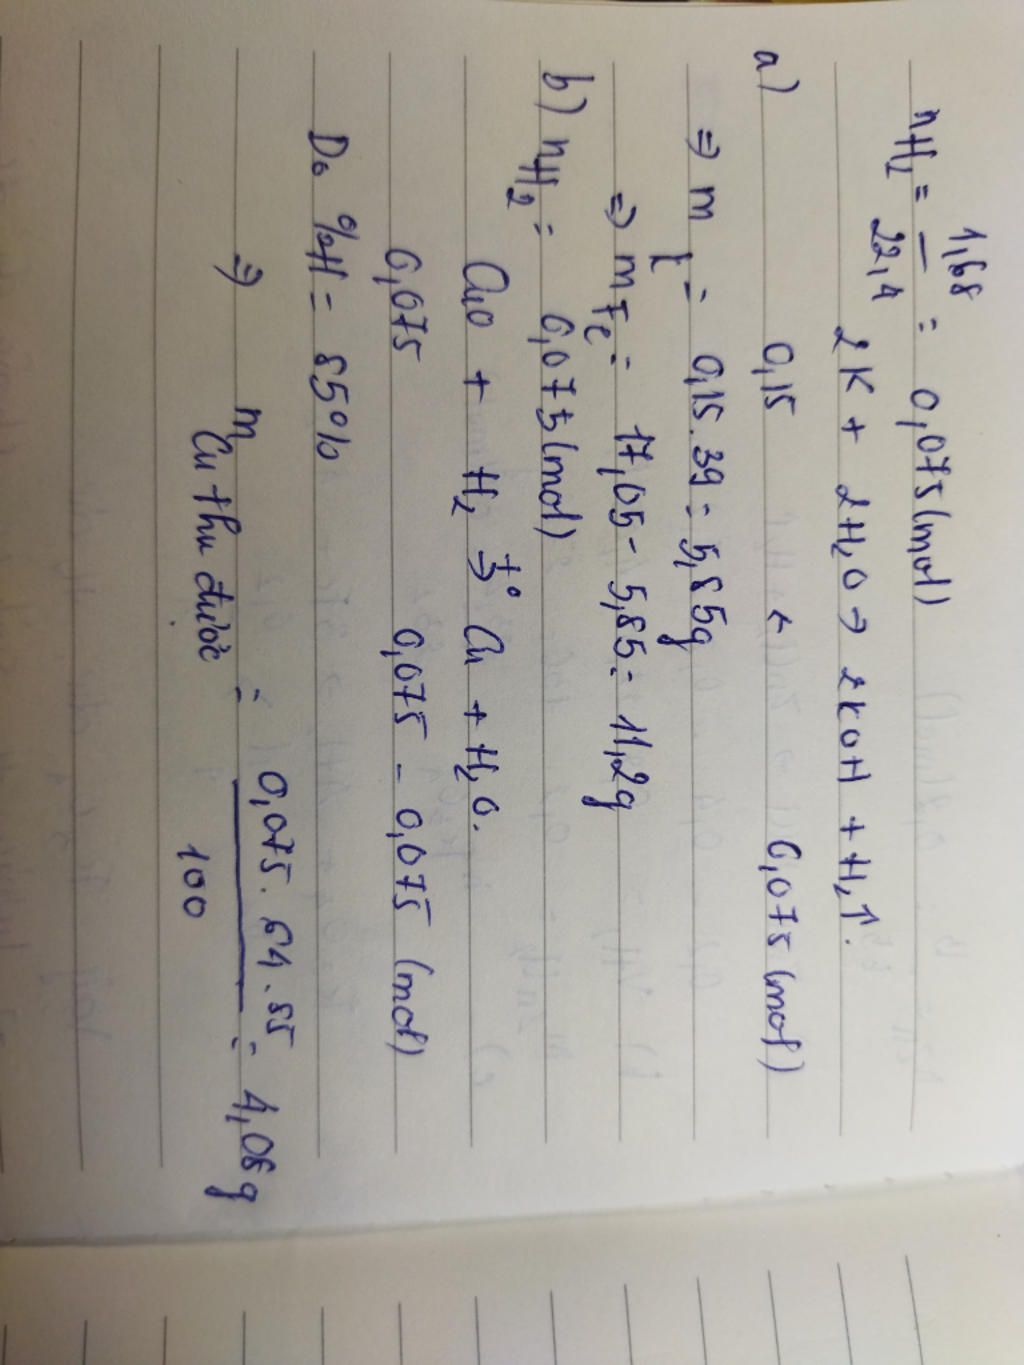 nH₂ = 1,68/22,4 = 0,075 (mol)
2K + 2H₂O → 2KOH + H₂↑.
a) 0,15 ← 0,075 (mol)
⇒ m K = 0,15.39 = 5,85g
⇒ mFe = 17,05 - 5,85 = 11,2g
b) nH₂ = 0,075 (mol)
CuO + H₂ →t° Cu + H₂O.
0,075 0,075 - 0,075 (mol)
Do %H = 85%
⇒ m Cu thu được = 0,075.64.85/100 = 4,08g